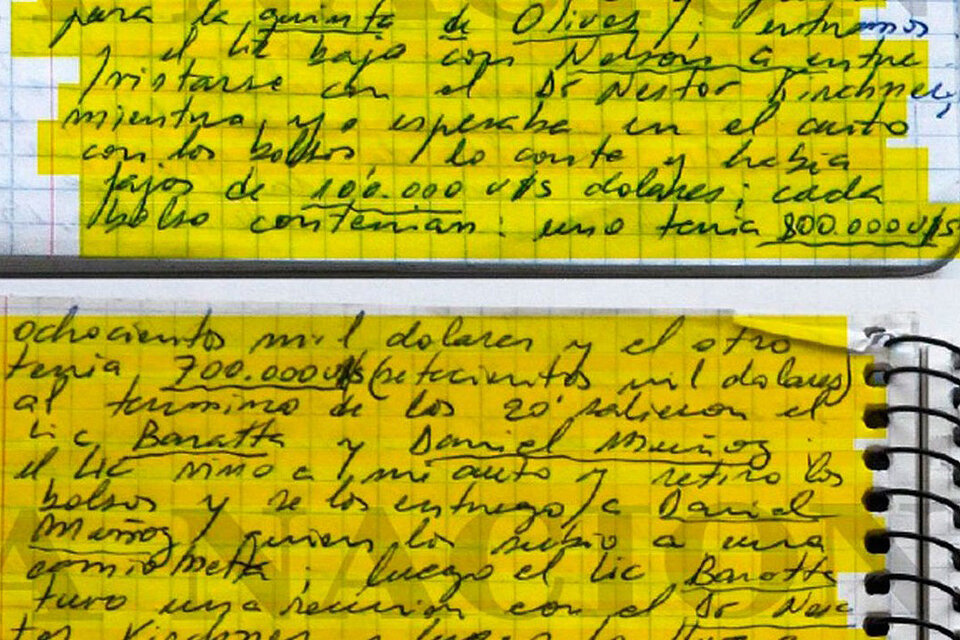 para la quinta de Olivos, entramos
y el Lic bajo con Nelson a entre
vistarse con el Dr Nestor Kirchner,
mientra, yo esperaba en el auto
con los bolsos, lo conte y habia
fajos de 100.000 u$s dolares; cada
bolso contenian: uno tenia 800.000 u$s
ochocientos mil dolares y el otro
tenia 700.000 u$s (setecientos mil dolares)
al termino de los 20' salieron el
Lic Baratta y Daniel Muñoz.
el Lic vino a mi auto y retiro los
bolsos y se los entrego a Daniel
Muñoz, quien los subio a una
camioneta; luego el Lic Baratta
tuvo una reunion con el Dr Nes
tor Kirchner y luego lo
LA NACION